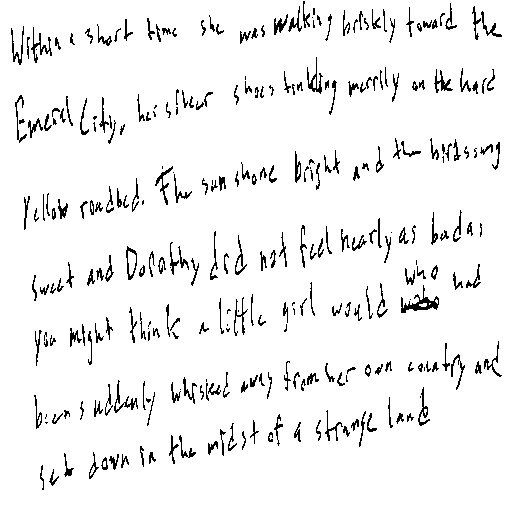 Within a short time she was walking briskly toward the
Emerald City, her silver shoes tinkling merrily on the hard
Yellow roadbed. The sun shone bright and the birds sung
sweet and Dorothy did not feel nearly as bad as
you might think a little girl would who had
been suddenly whisked away from her own country and
set down in the midst of a strange land